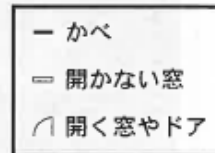 かべ
開かない窓
開く窓やドア